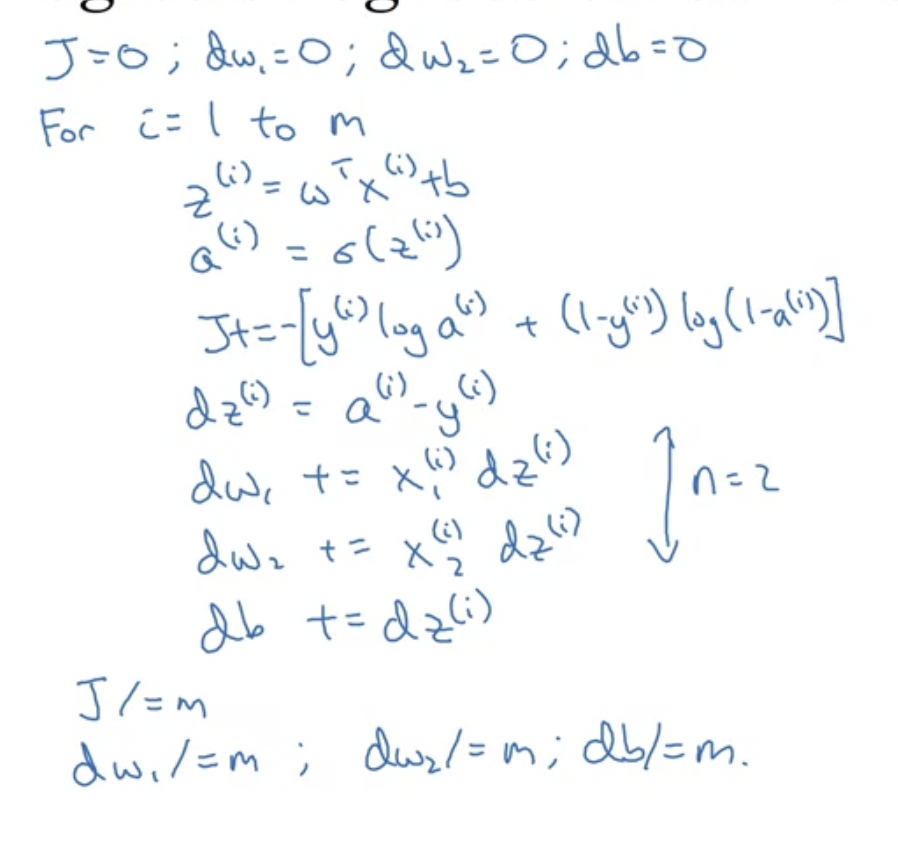 J=0; dw₁=0; dw₂=0; db=0
For i=1 to m
z⁽ⁱ⁾ = ωᵀx⁽ⁱ⁾+b
a⁽ⁱ⁾ = σ(z⁽ⁱ⁾)
J+=-[y⁽ⁱ⁾ log a⁽ⁱ⁾ + (1-y⁽ⁱ⁾) log(1-a⁽ⁱ⁾)]
dz⁽ⁱ⁾ = a⁽ⁱ⁾-y⁽ⁱ⁾
dw₁ += x₁⁽ⁱ⁾ dz⁽ⁱ⁾
n=2
dw₂ += x₂⁽ⁱ⁾ dz⁽ⁱ⁾
db += dz⁽ⁱ⁾
J/=m
dw₁/=m; dw₂/=m; db/=m.